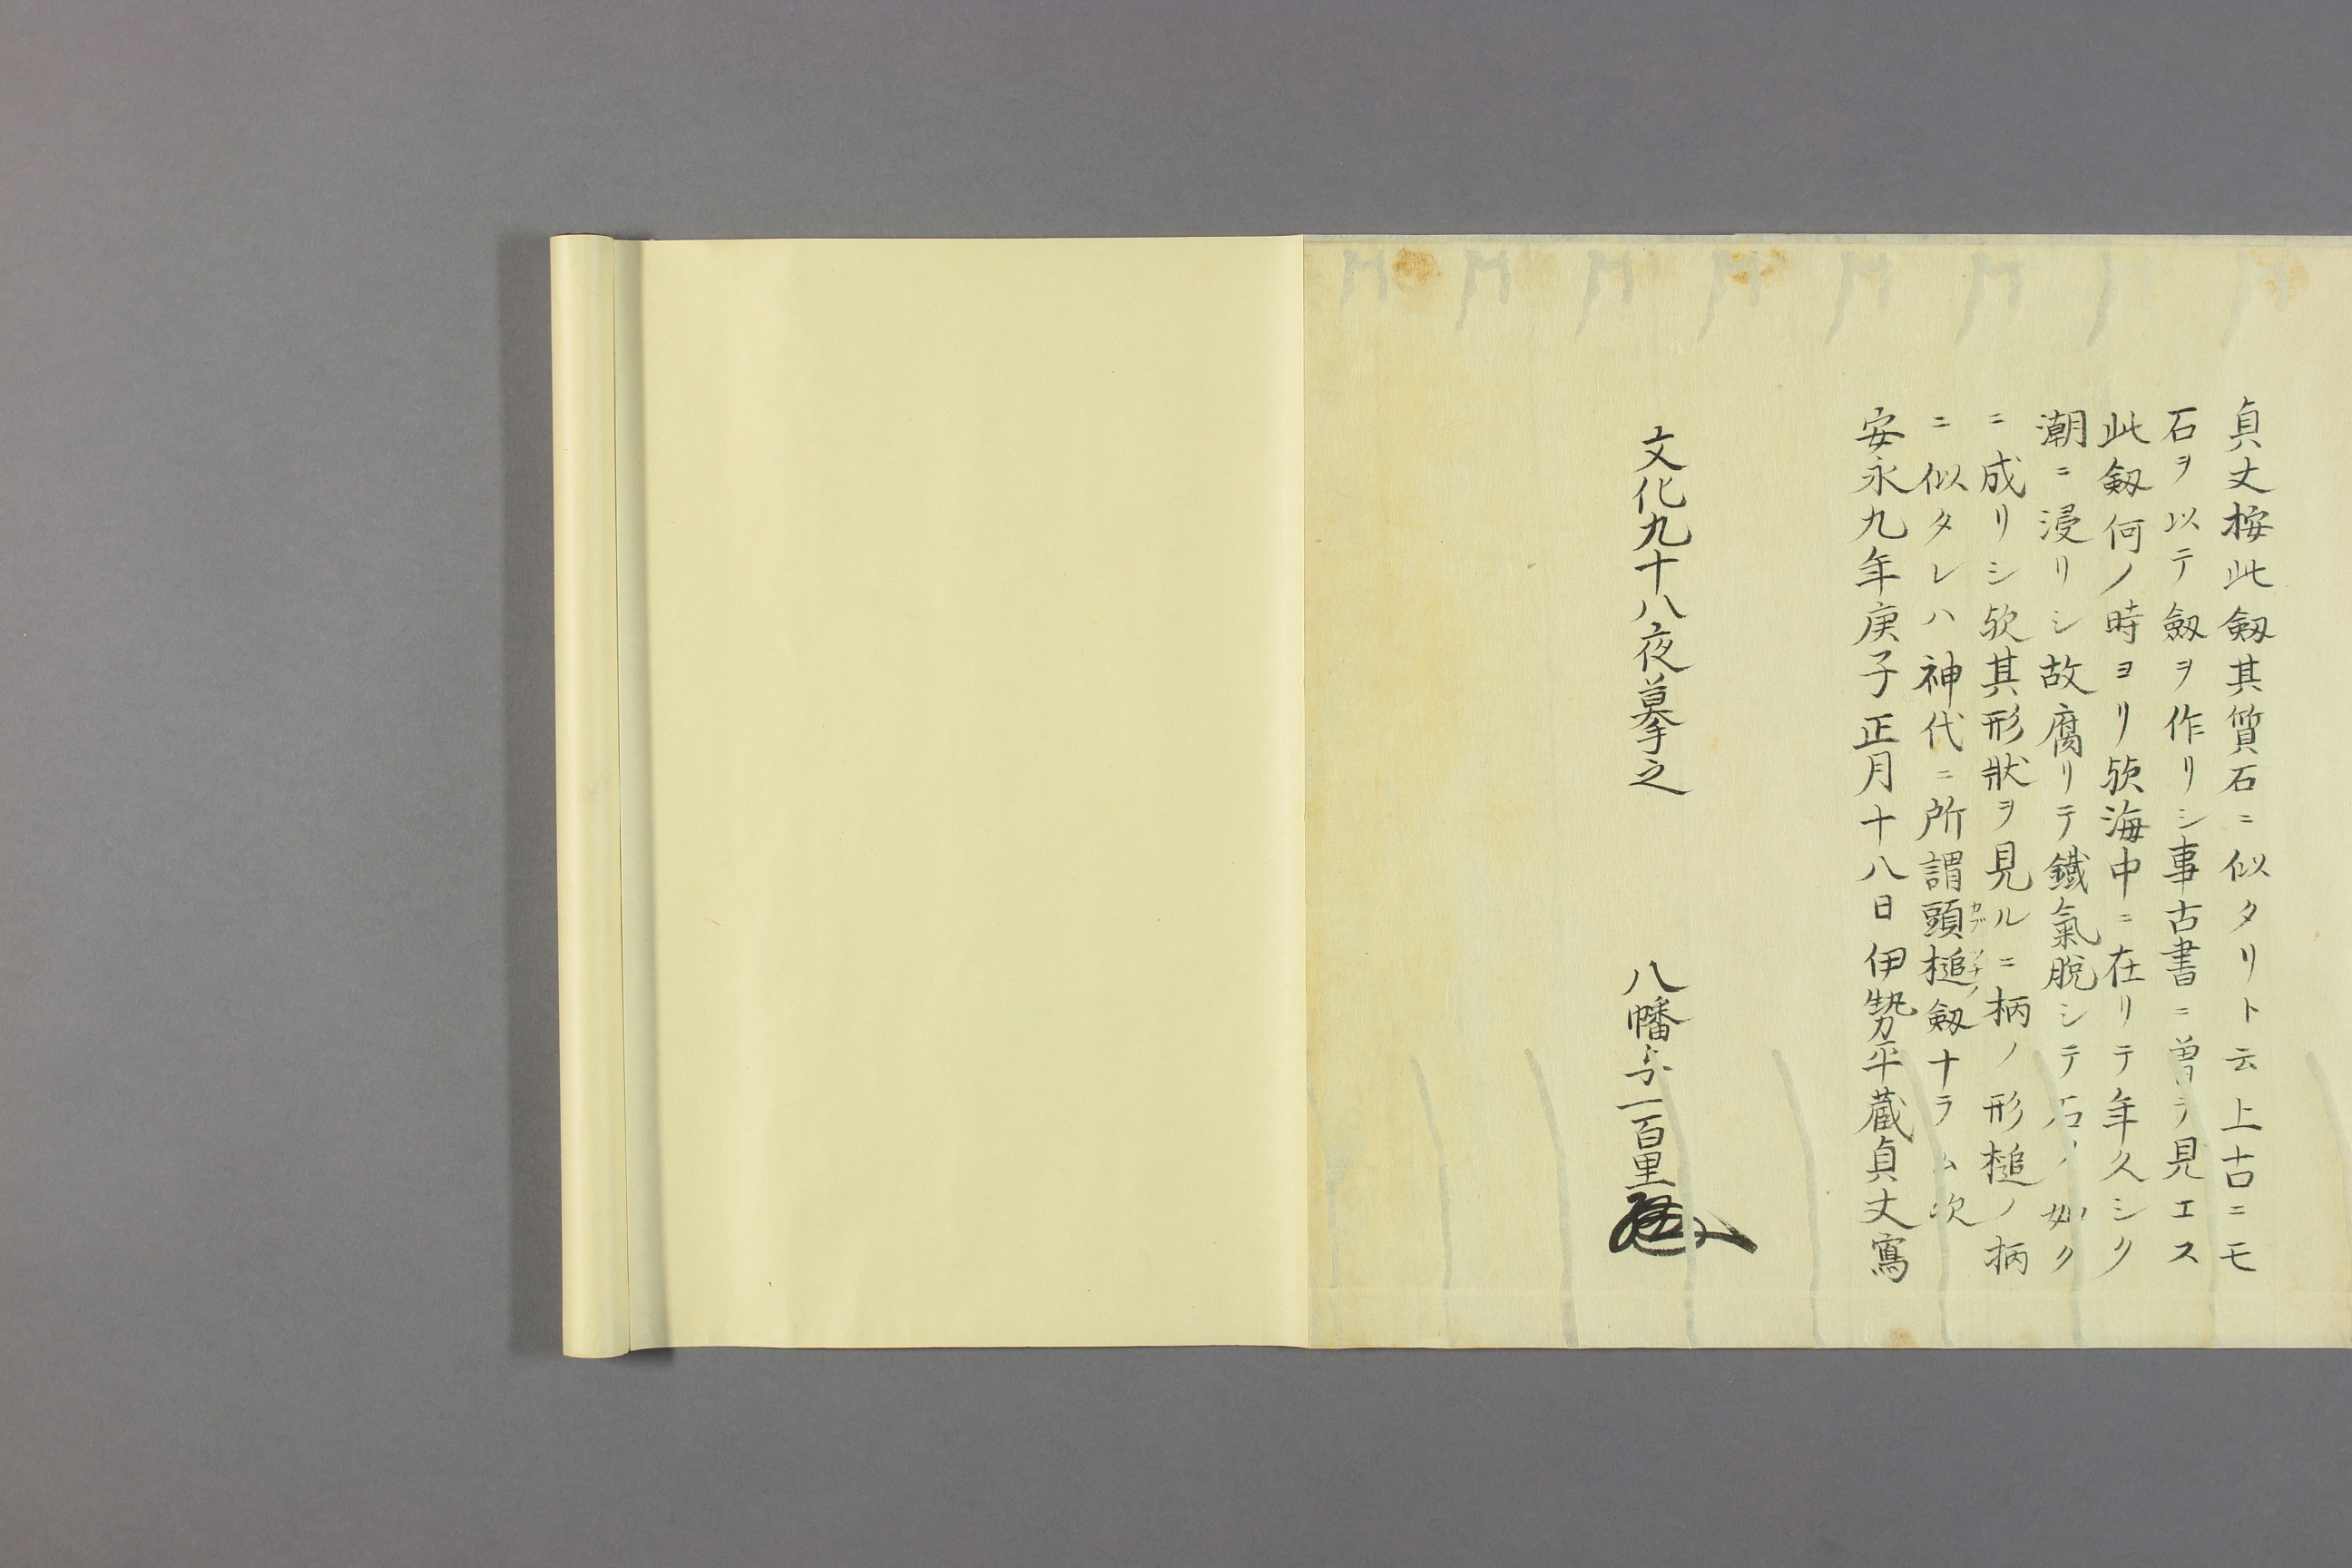 貞丈按此劔其質石ニ似タリト云上古ニモ
石ヲ以テ劔ヲ作リシ事古書ニ曽ヲ見エス
此劔何ノ時ヨリ欤海中ニ在リテ年久シク
潮ニ浸リシ故腐リテ鐵氣脱シテ石ノ如ク
ニ成リシ欤其形狀ヲ見ルニ柄ノ形槌ノ柄
ニ似タレハ神代ニ所謂頭槌劔ナラム欤
カブツチノ
安永九年庚子正月十八日伊勢平蔵貞丈寫
文化九十八夜摹之
八幡
一百里